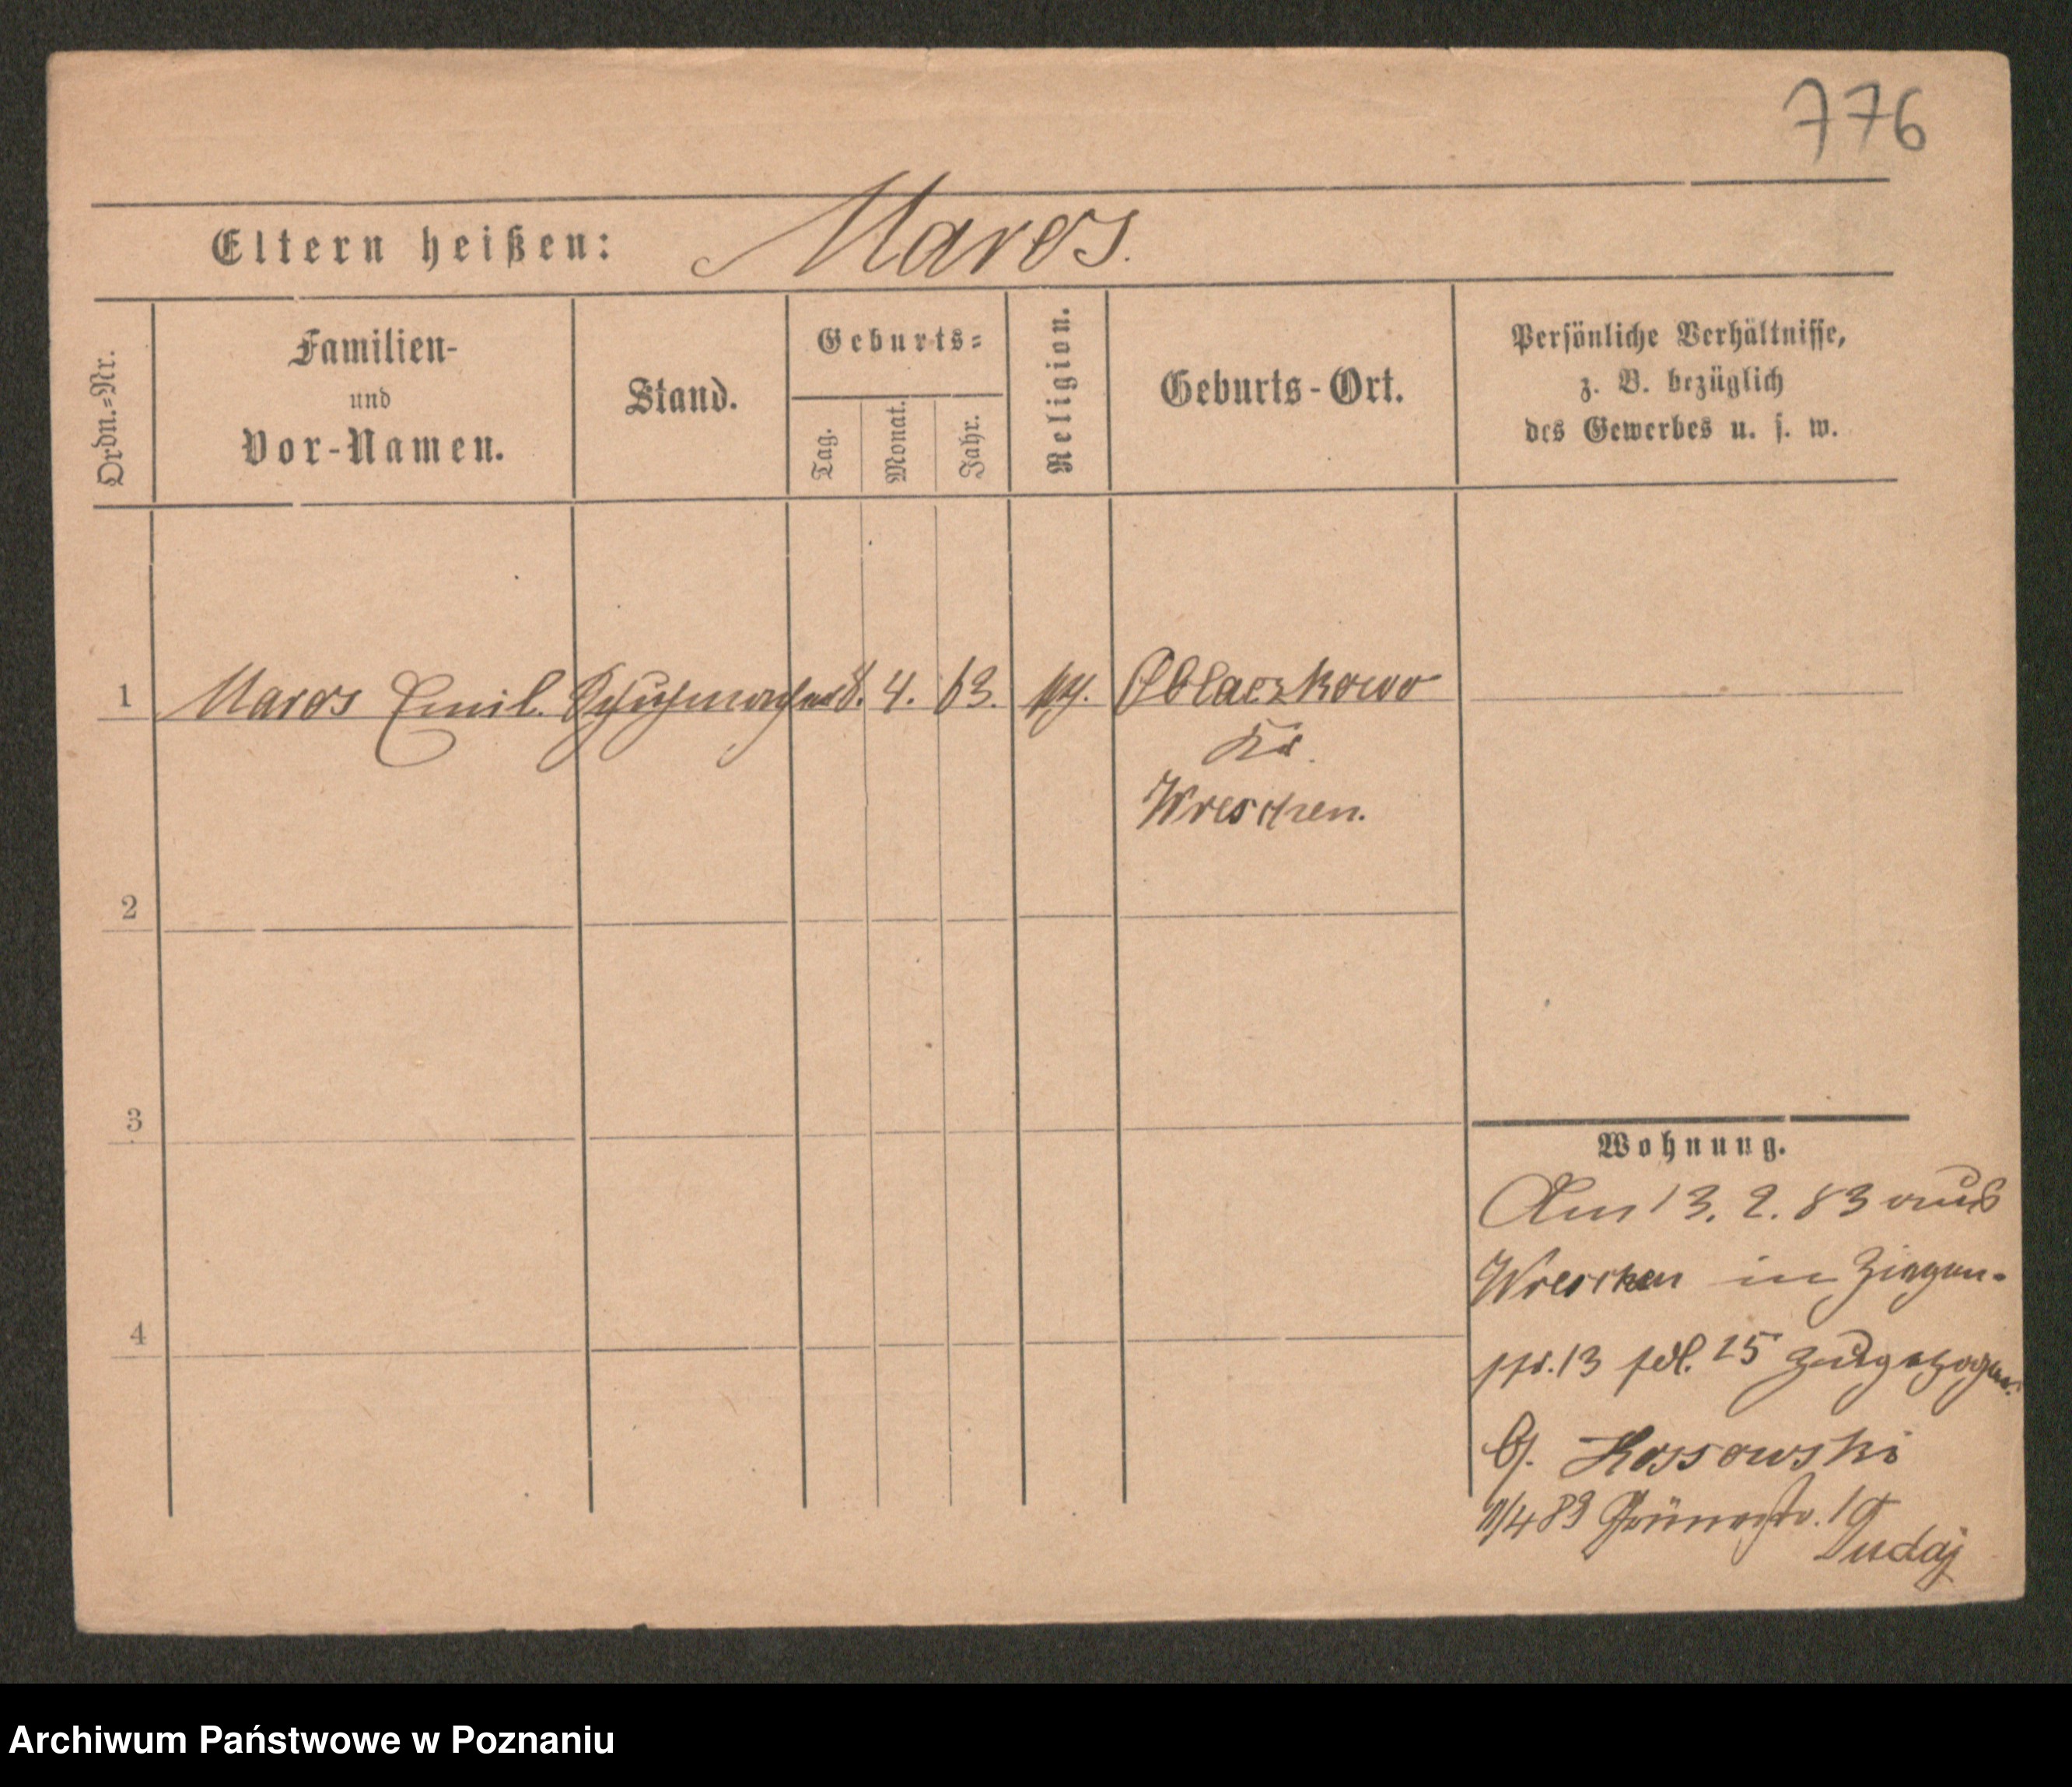 776
Eltern heißen: Maros.
Ordn.=Nr.
Familien-
und
Vor-Namen.
Stand.
Geburts=
Tag.
Monat.
Jahr.
Religion.
Geburts-Ort.
Persönliche Verhältnisse,
z. B. bezüglich
des Gewerbes u. s. w.
1 Maros Emil. Schuhmacher 8. 4. 63. Oblaczkowo
Kr.
Wreschen.
2
3
4
Wohnung.
Am 13. 2. 83 aus
Wreschen in Ziegen-
str. 13 bei zugezogen.
b/. Kossowski
11/4 83 Grünestr. 1a
Dudaj
Archiwum Państwowe w Poznaniu